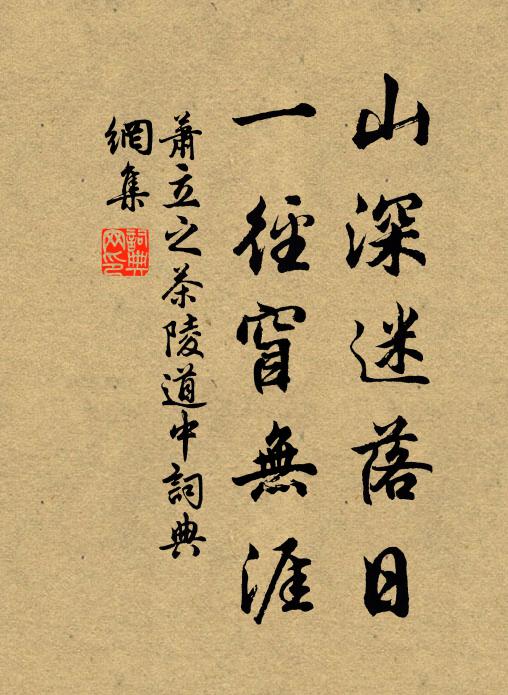 山深迷落日
一徑窅無涯
蕭立之茶陵道中詞典
網集
詞典
网印